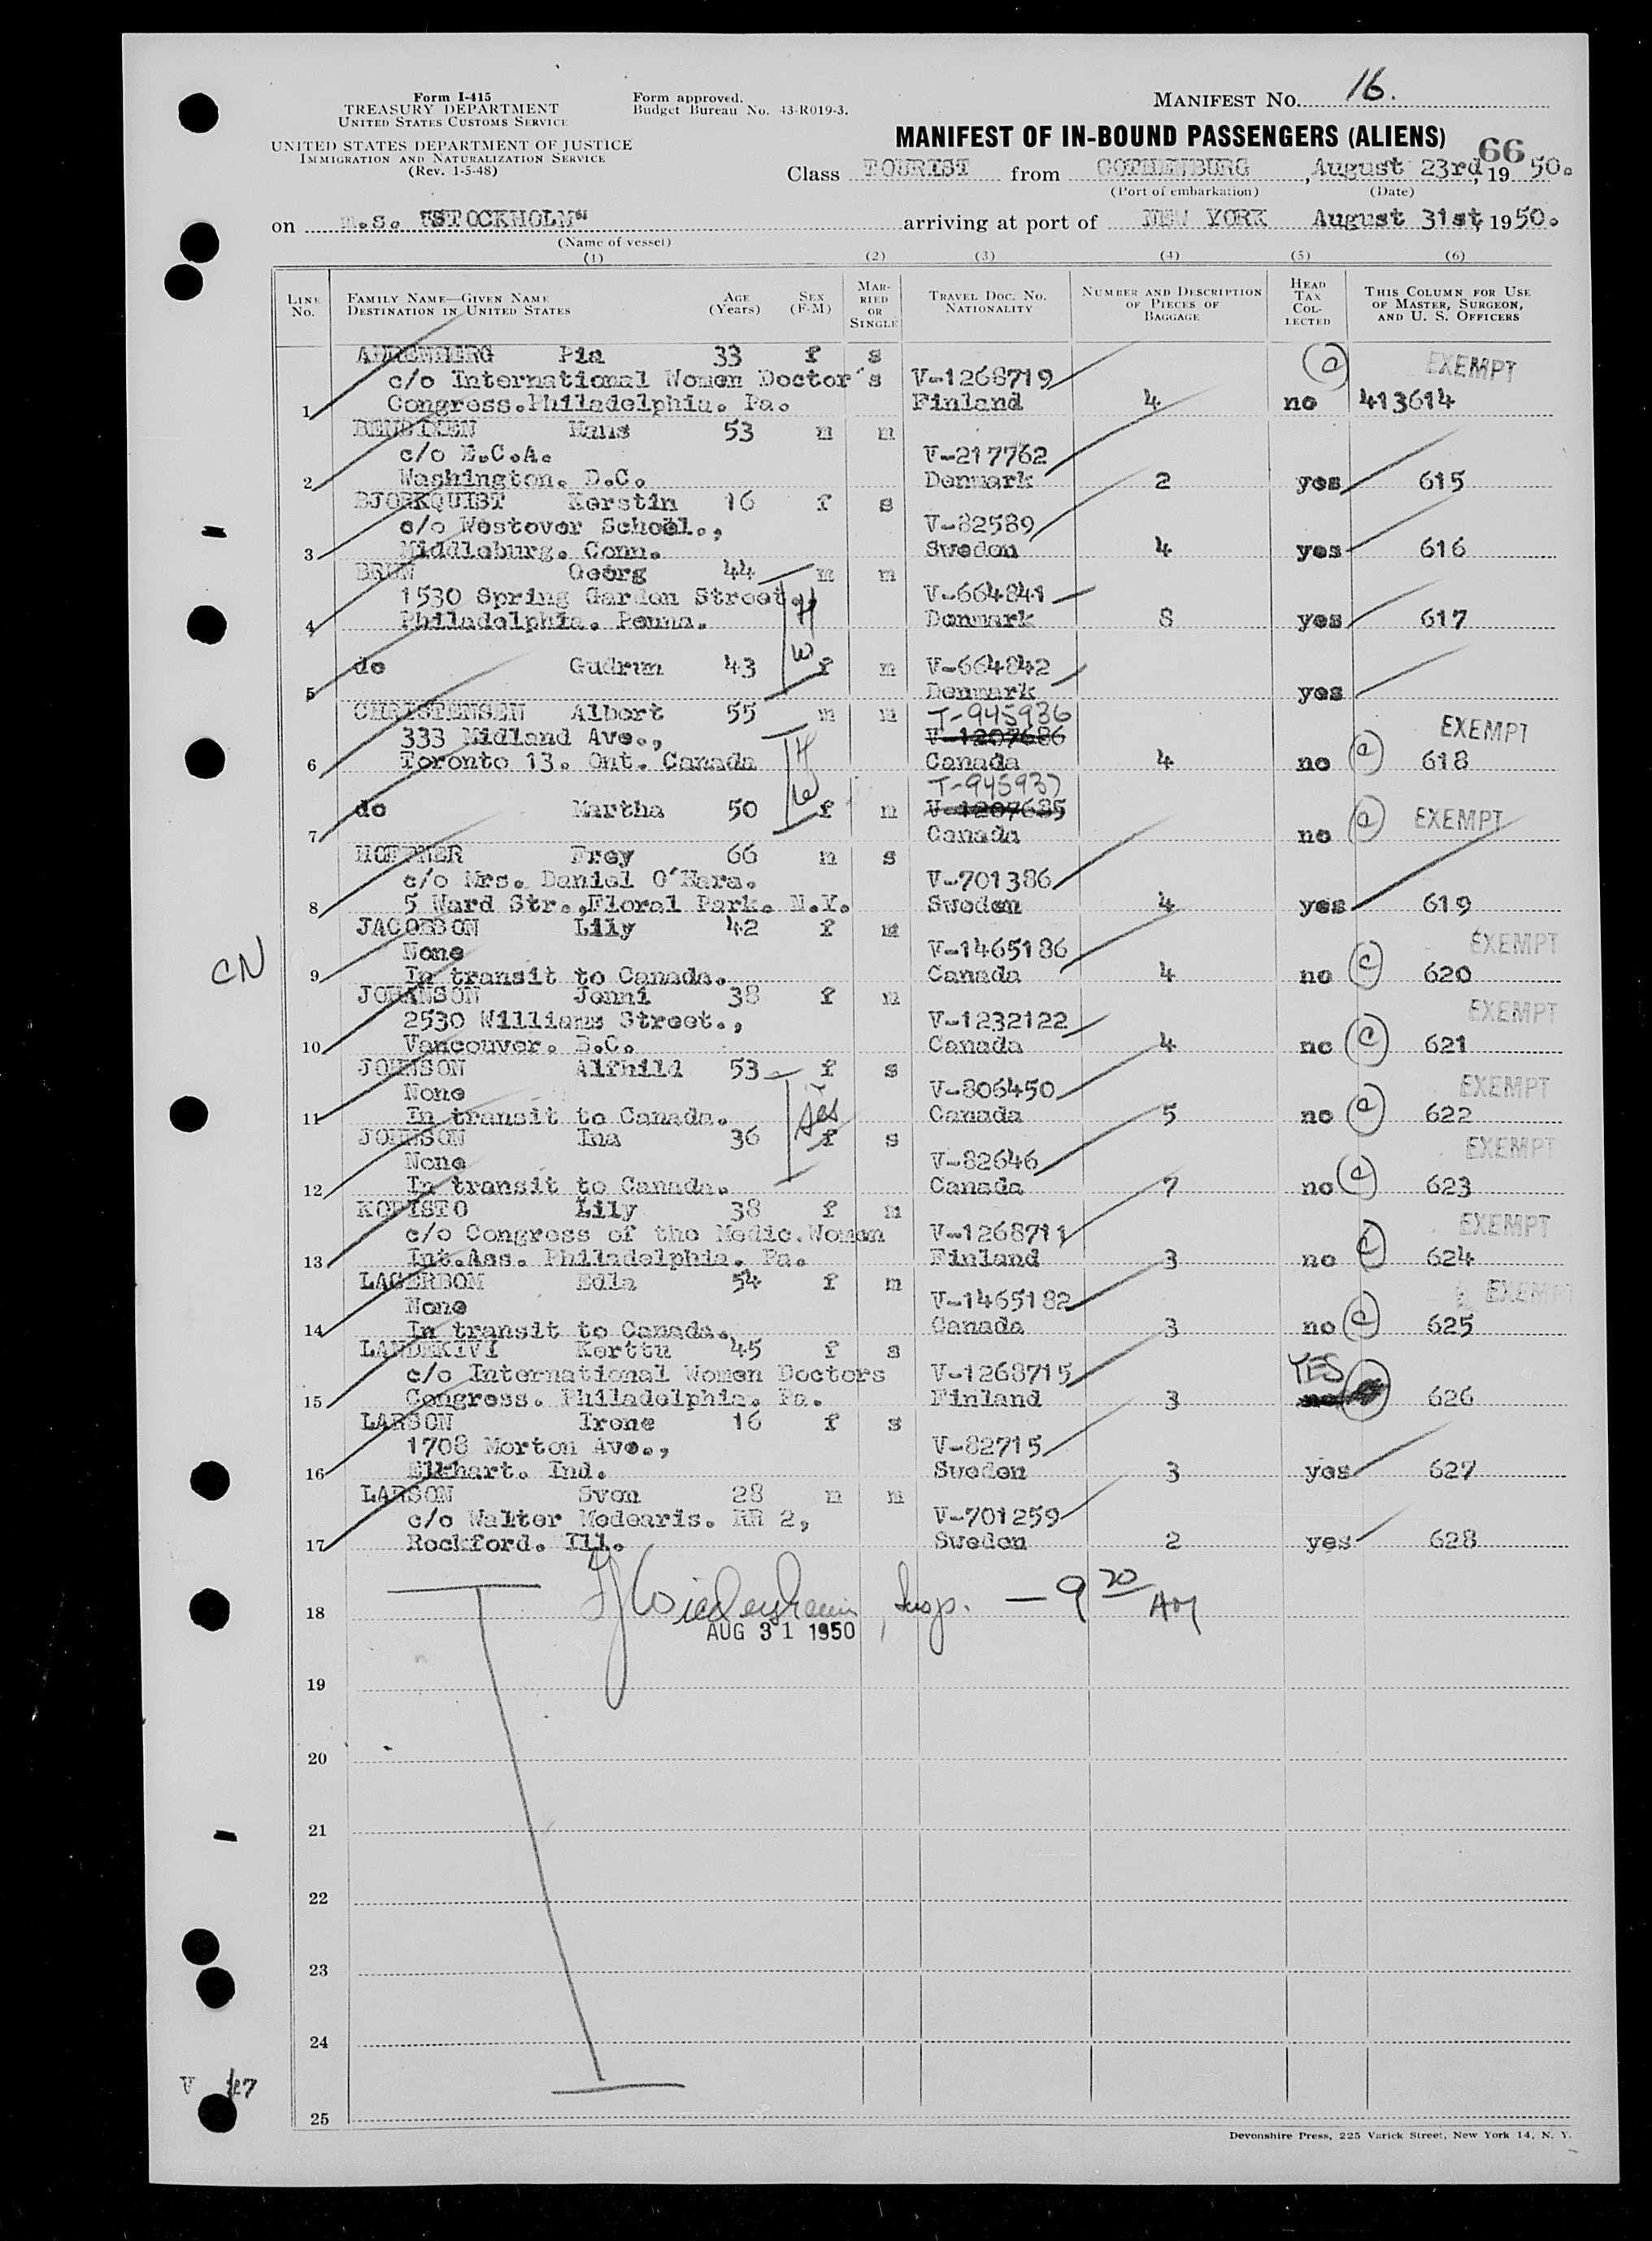 Form I-415
TREASURY DEPARTMENT
UNITED STATES CUSTOMS SERVICE
UNITED STATES DEPARTMENT OF JUSTICE
IMMIGRATION AND NATURALIZATION SERVICE
(Rev. 1-5-48)
Form approved.
Budget Bureau No. 43-R019-3.
MANIFEST No. 16.
MANIFEST OF IN-BOUND PASSENGERS (ALIENS)
66
Class TOURIST from GOTHENBURG, August 23rd, 1950.
(Port of embarkation) (Date)
on m.s. "STOCKHOLM" arriving at port of NEW YORK August 31st, 1950.
(Name of vessel)
(1) (2) (3) (4) (5) (6)
LINE No. FAMILY NAME—GIVEN NAME DESTINATION IN UNITED STATES AGE (Years) SEX (F-M) MARRIED OR SINGLE TRAVEL DOC. NO. NATIONALITY NUMBER AND DESCRIPTION OF PIECES OF BAGGAGE HEAD TAX COLLECTED THIS COLUMN FOR USE OF MASTER, SURGEON, AND U. S. OFFICERS
Pia 33 f s EXEMPT
c/o International Women Doctor's V-1268719
1 Congress. Philadelphia. Pa. Finland 4 no 413614
Hans 53 m m
c/o E.C.A. V-217762
2 Washington. D.C. Denmark 2 yes 615
BJORKQUIST Kerstin 16 f s
c/o Westover School., V-82589
3 Middleburg. Conn. Sweden 4 yes 616
BRUN Georg 44 m m
1530 Spring Garden Street. H V-664841
4 Philadelphia. Penna. Denmark 8 yes 617
do Gudrun 43 W f m V-664842
5 Denmark yes
CHRISTENSEN Albert 55 m m T-945936
333 Midland Ave., H V-1207686 EXEMPT
6 Toronto 13. Ont. Canada Canada 4 no 618
T-945937
do Martha 50 W f m V-1207685 EXEMPT
7 Canada no
Frey 66 m s
c/o Mrs. Daniel O'Hara. V-701386
8 5 Ward Str., Floral Park. N.Y. Sweden 4 yes 619
JACOBSON Lily 42 f m EXEMPT
CN None V-1465186
9 In transit to Canada. Canada 4 no 620
JOHANSON Jenni 38 f m EXEMPT
2530 Williams Street., V-1232122
10 Vancouver. B.C. Canada 4 no 621
JOHNSON Alfhild 53 f s EXEMPT
None sis V-806450
11 In transit to Canada. Canada 5 no 622
JOHNSON Ina 36 f s EXEMPT
None V-82646
12 In transit to Canada. Canada 7 no 623
KOPISTO Lily 38 f m EXEMPT
c/o Congress of the Medic. Women V-1268711
13 Int. Ass. Philadelphia. Pa. Finland 3 no 624
LAGERBOM Edla 54 f m EXEMPT
None V-1465182
14 In transit to Canada. Canada 3 no 625
Kerttu 45 f s
c/o International Women Doctors V-1268715 YES
15 Congress. Philadelphia. Pa. Finland 3 no 626
LARSON Irene 16 f s
1708 Morton Ave., V-82715
16 Elkhart. Ind. Sweden 3 yes 627
LARSON Sven 28 m m
c/o Walter Medearis. RR 2, V-701259
17 Rockford. Ill. Sweden 2 yes 628
18 Insp. — 9 20 AM
AUG 31 1950
19
20
21
22
23
24
25
Devonshire Press, 225 Varick Street, New York 14, N. Y.